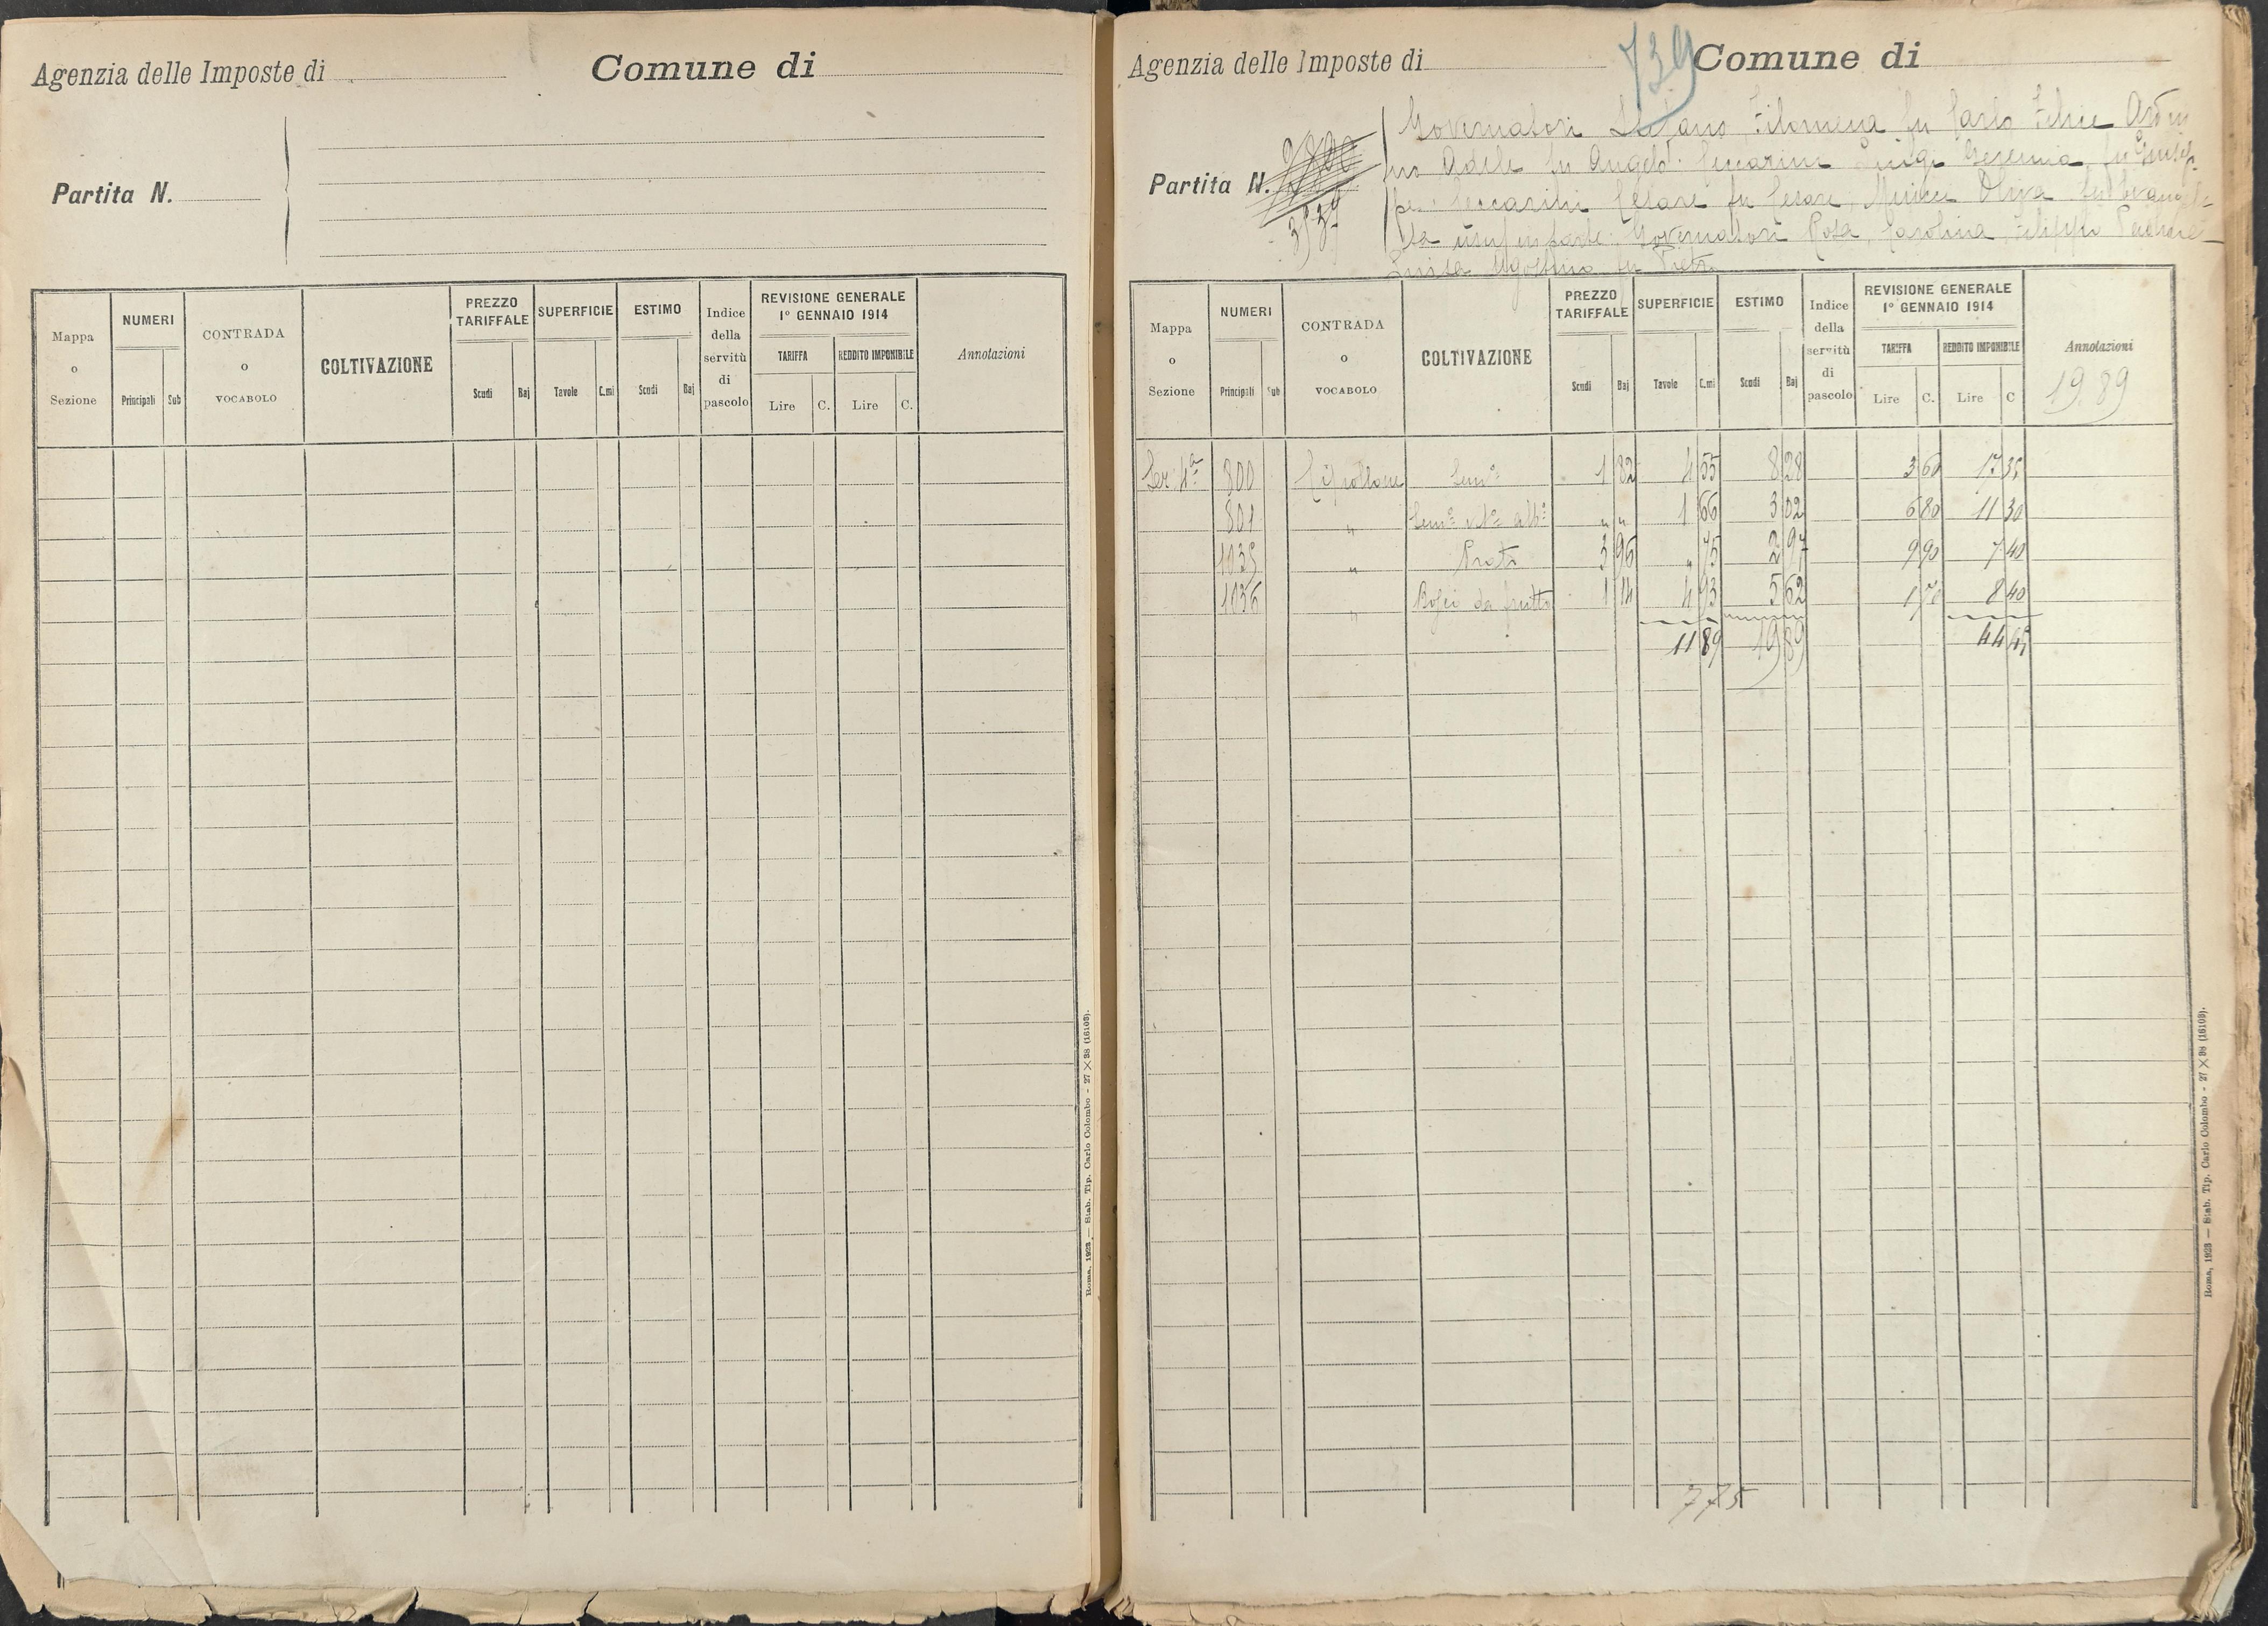 Agenzia delle Imposte di
Comune di
Partita N.
Mappa o Sezione
NUMERI
Principali Sub
CONTRADA o VOCABOLO
COLTIVAZIONE
PREZZO TARIFFALE
Scudi Baj
SUPERFICIE
Tavole C.mi
ESTIMO
Scudi Baj
Indice della servitù di pascolo
REVISIONE GENERALE
1º GENNAIO 1914
TARIFFA
Lire C.
REDDITO IMPONIBILE
Lire C.
Annotazioni
Roma, 1923 — Stab. Tip. Carlo Colombo - 27 X 38 (16103).
Agenzia delle Imposte di
739
Comune di
Partita N.
Governatori Stefano, Filomena fu Carlo Felice
Adele fu Angelo. Ceccarini Luigi Geremia fu Giusep-
pe. Ceccarini Cesare fu Cesare, Oliva fu Evangeli-
sta usuf in parte. Governatori Rosa, Carolina, Filippo
Luisa Agostino fu Pietro
Mappa o Sezione
NUMERI
Principali Sub
CONTRADA o VOCABOLO
COLTIVAZIONE
PREZZO TARIFFALE
Scudi Baj
SUPERFICIE
Tavole C.mi
ESTIMO
Scudi Baj
Indice della servitù di pascolo
REVISIONE GENERALE
1º GENNAIO 1914
TARIFFA
Lire C.
REDDITO IMPONIBILE
Lire C
Annotazioni
19.89
Sez 4ª 800 Semº 1 82 4 55 8 28 3 60 17 35
801 " Semº vtº albº " " 1 66 3 02 6 80 11 30
1035 " Prato 3 96 " 75 2 97 9 90 7 40
1036 " Bosco da frutto 1 14 4 93 5 62 1 70 8 40
11 89 19 89 44 45
775
Roma, 1923 — Stab. Tip. Carlo Colombo - 27 X 38 (16103).